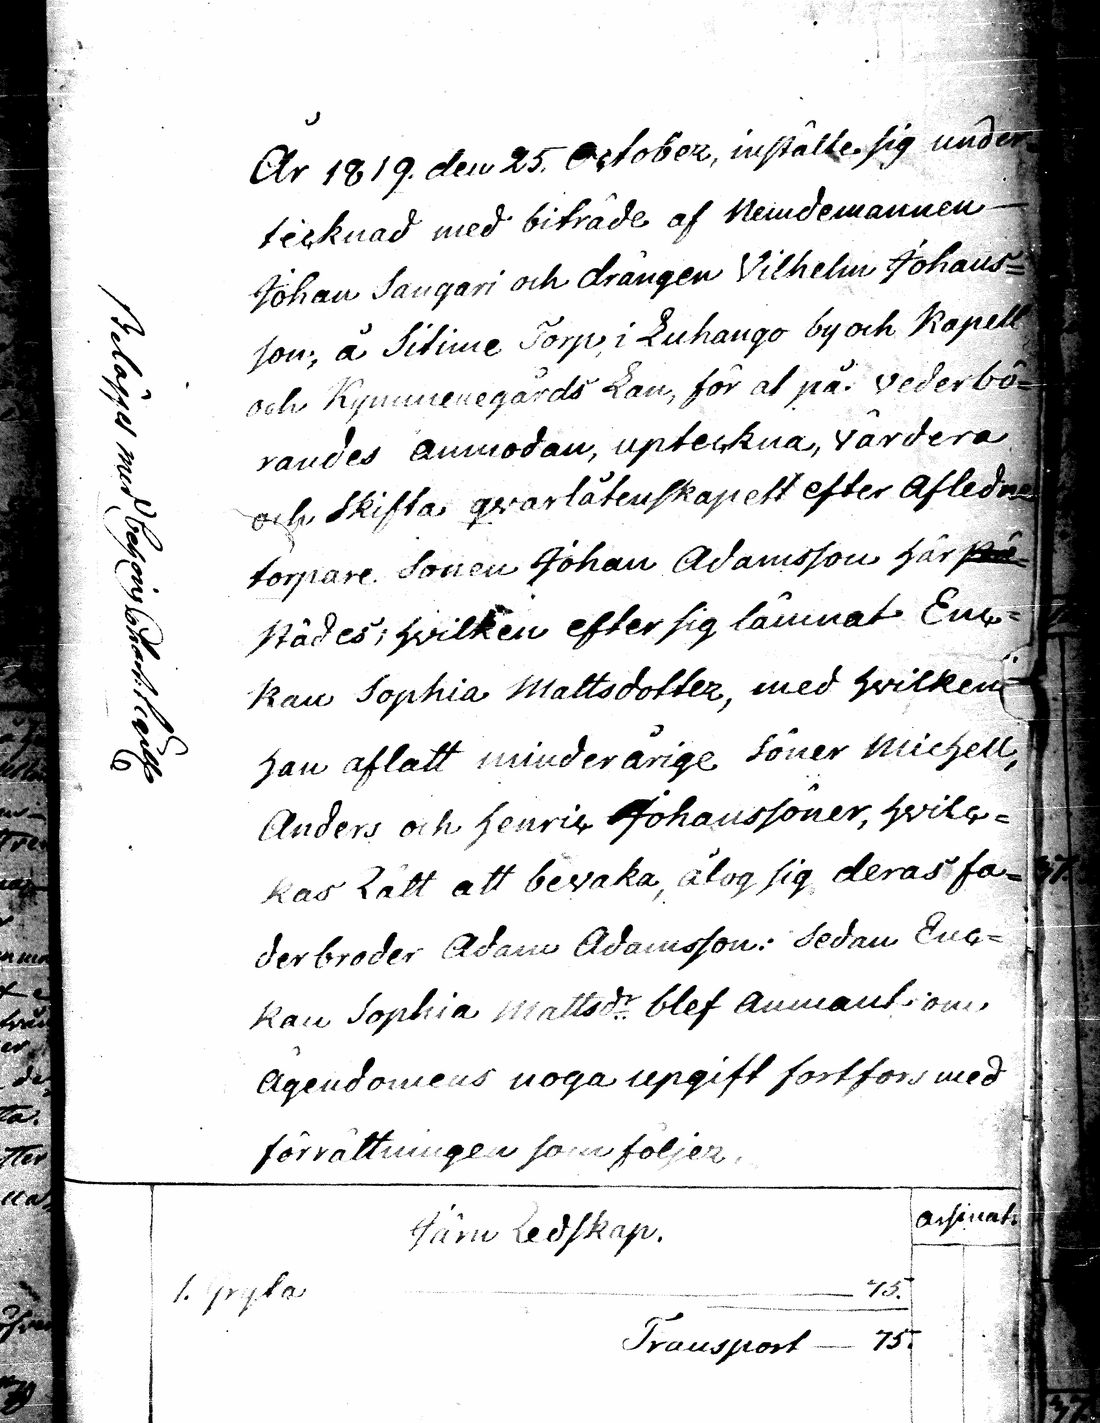 År 1819. den 25. October, instälte sig under-
tecknad med biträde af Nemdemannen
Johan Sangari och drängen Vilhelm Johans=
son, å Sitime Torp, i Luhango by och Kapell
och Kymmenegårds Län, för at på vederbö=
randes anmodan, upteckna, värdera
och Skifta qvarlåtenskapett efter Afledne
torpare Sonen Johan Adamsson här
städes; hvilken efter sig lämnat Enc=
kan Sophia Mattsdotter, med hvilken
han aflatt minderårige Söner Michell,
Anders och Henric Johanssöner, hvilc=
kas Rätt att bevaka, åtog sig deras fa=
derbroder Adam Adamsson: Sedan Enc=
kan Sophia Mattsdr blef anmant om
Ägendomens noga upgift fortfors med
förrättningen som följer.
Belägges med behörig Charta
Järn Redskap.
Assignat:
1. Gryta 75.
Transport — 75.